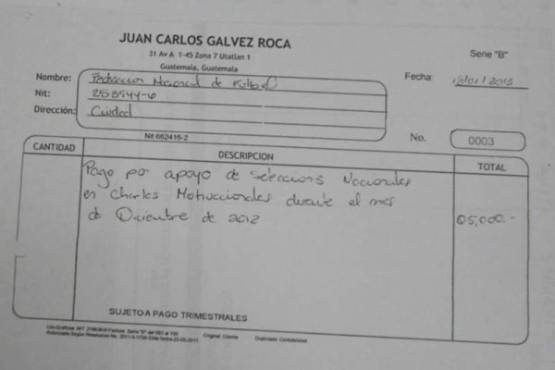 JUAN CARLOS GALVEZ ROCA
31 Av A 1-45 Zona 7 Utatlan 1
Guatemala, Guatemala
Serie "B"
Nombre: Federacion Nacional de Futbol
Fecha: /01/2013
Nit:
Dirección: Ciudad
Nit 662416-2
No. 0003
CANTIDAD DESCRIPCION TOTAL
Pago por apoyo de Selecciones Nacionales
en Charlas Motivacionales durante el mes
de Diciembre de 2012 Q5,000.-
SUJETO A PAGO TRIMESTRALES
Original: Cliente Duplicado: Contabilidad